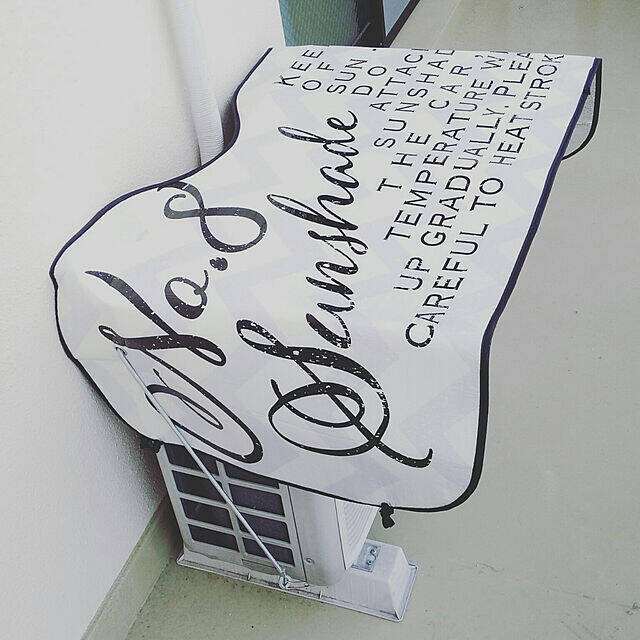 No.8
Sunshade
KEE
OF F
SUN
DO
ATTAC
T SUNSHAD
THE CAR.
TEMPERATURE WI
UP GRADUALLY, PLEA
CAREFUL TO HEATSTROK